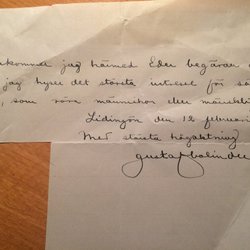 kommer jag härmed Eder begäran
jag hyser det största intresse för
, som röra människor eller
Lidingön den 12 februari
Med största högaktning